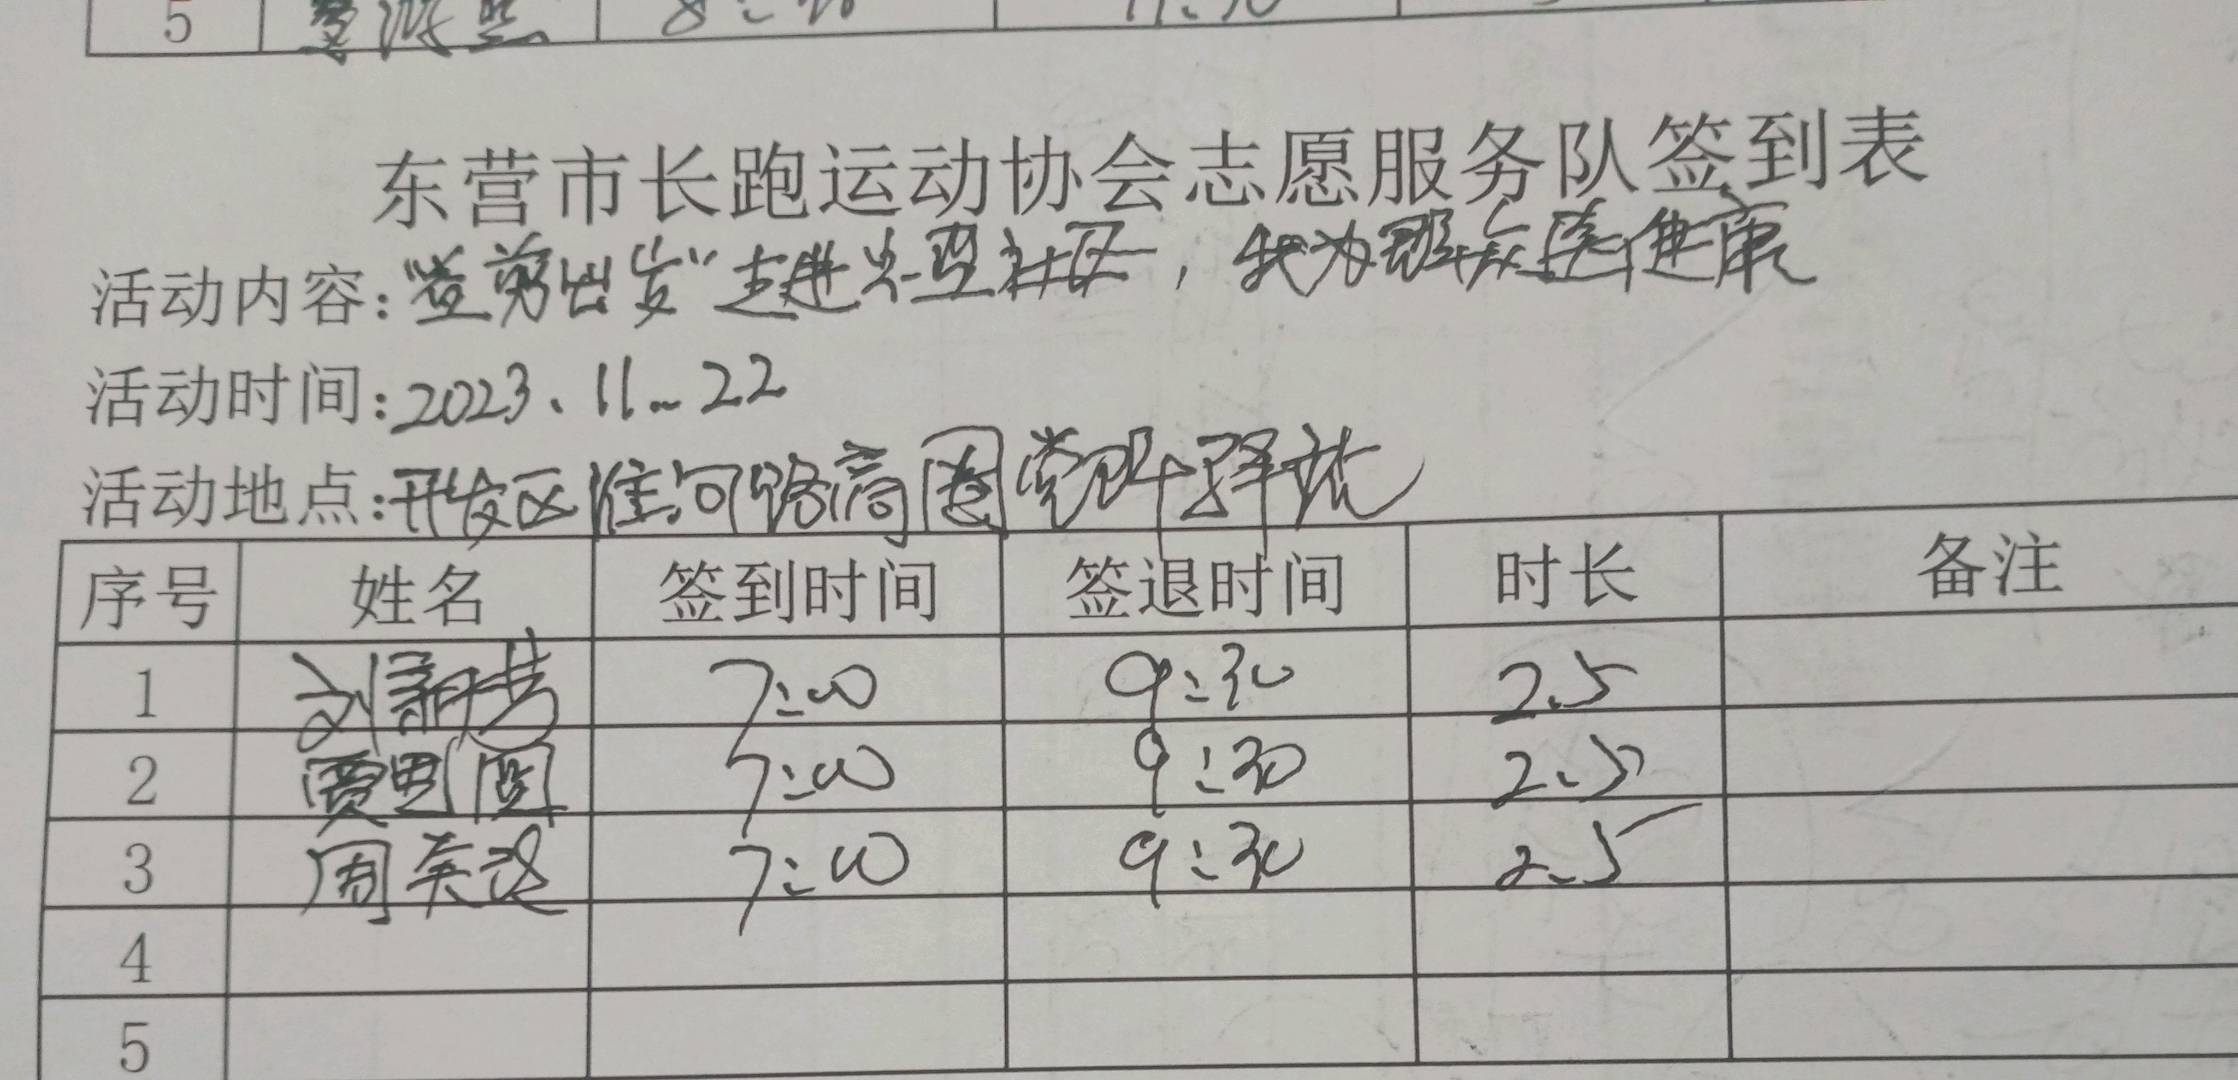 5 8:
东营市长跑运动协会志愿服务队签到表
活动内容:"益剪出发"走进社区,我为群众送健康
活动时间:2023.11.22
活动地点:开发区淮河路商圈党群驿站
序号 姓名 签到时间 签退时间 时长 备注
1 刘新 7:00 9:30 2.5
2 贾思 7:00 9:30 2.5
3 周英 7:00 9:30 2.5
4
5